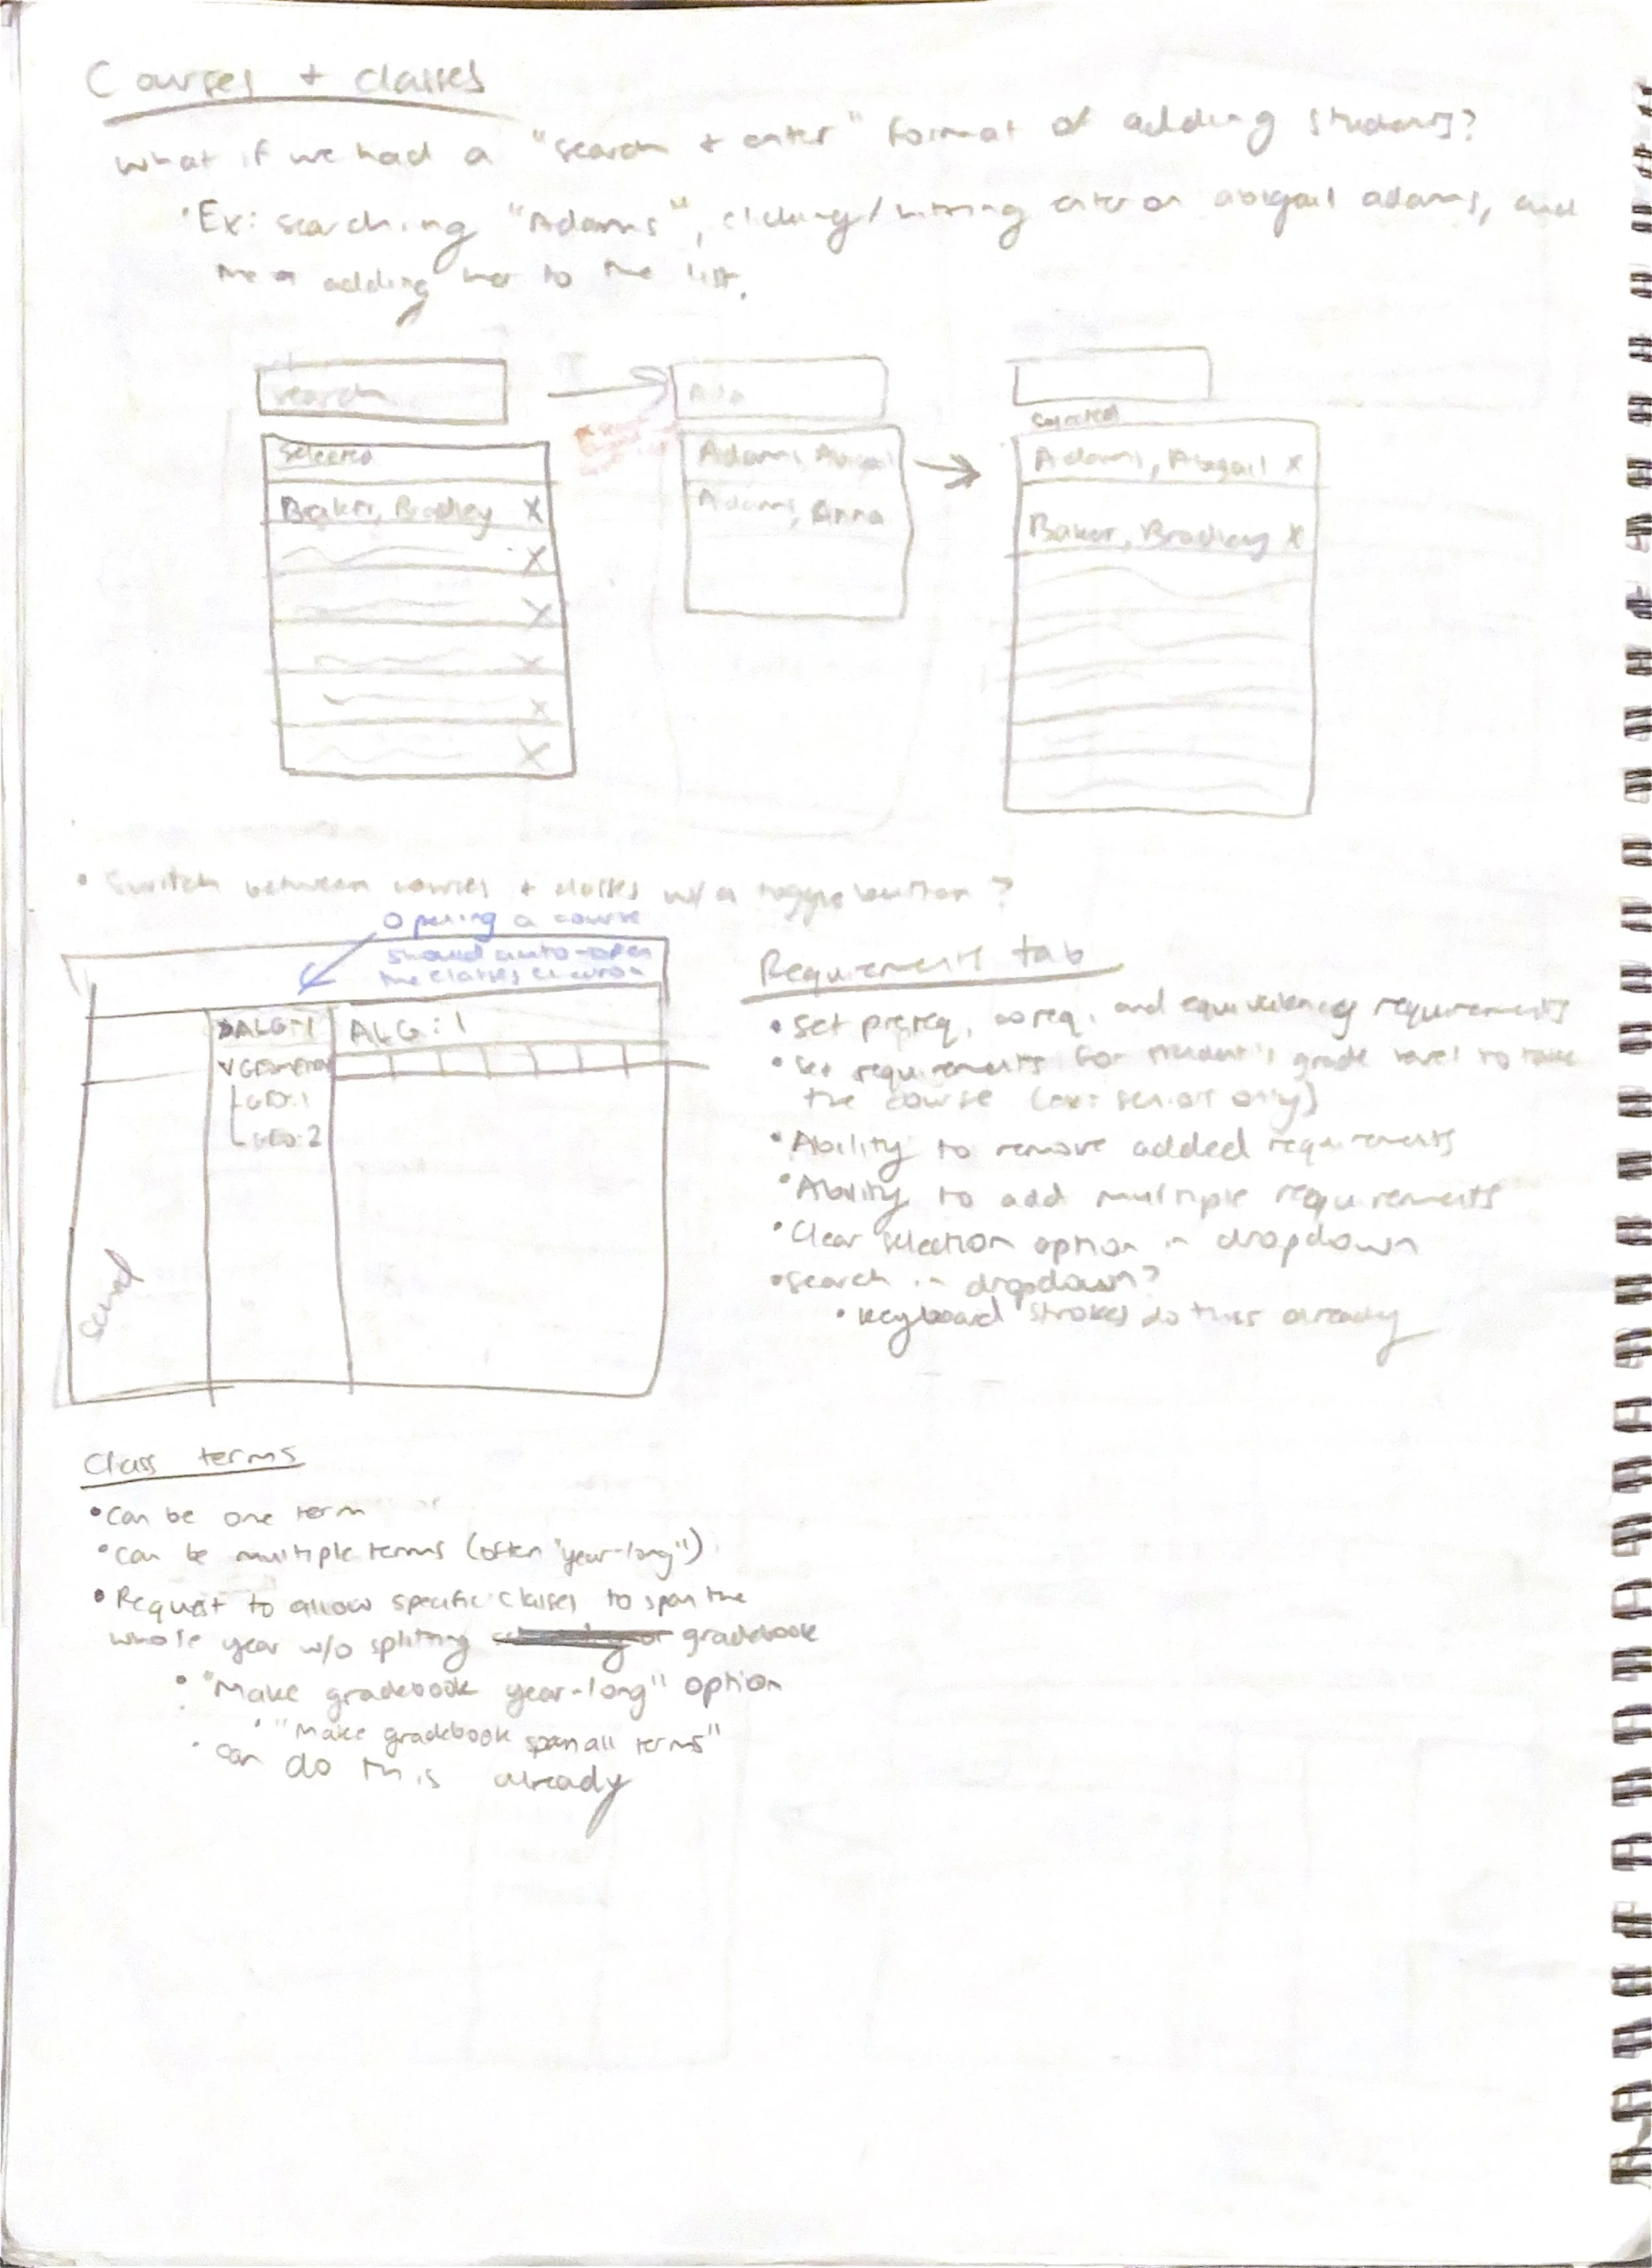 Courses + classes
What if we had a "search + enter" format of adding students?
• Ex: searching "Adams", clicking/hitting enter on abigail adams, and
then adding her to the list.
search
Selected
Baker, Bradley X
X
X
X
X
X
Ada
Adams, Abigail
Adams, Anna
Selected
Adams, Abigail X
Baker, Bradley X
• Switch between courses + classes w/a toggle button?
Opening a course
should auto-open
the classes
>ALG:1
ALG:1
V GEOMETRY
GEO:1
GEO:2
Requirements tab
• Set prereq, coreq, and equivalency requirements
• Set requirements for student's grade level to take
the course (ex: seniors only)
• Ability to remove added requirements
• Ability to add multiple requirements
• Clear selection option in dropdown
• Search in dropdown?
• Keyboard strokes do this already
Class terms
• Can be one term
• Can be multiple terms (often "year-long")
• Request to allow specific classes to span the
whole year w/o splitting gradebook
• "Make gradebook year-long" option
• "Make gradebook span all terms"
• can do this already